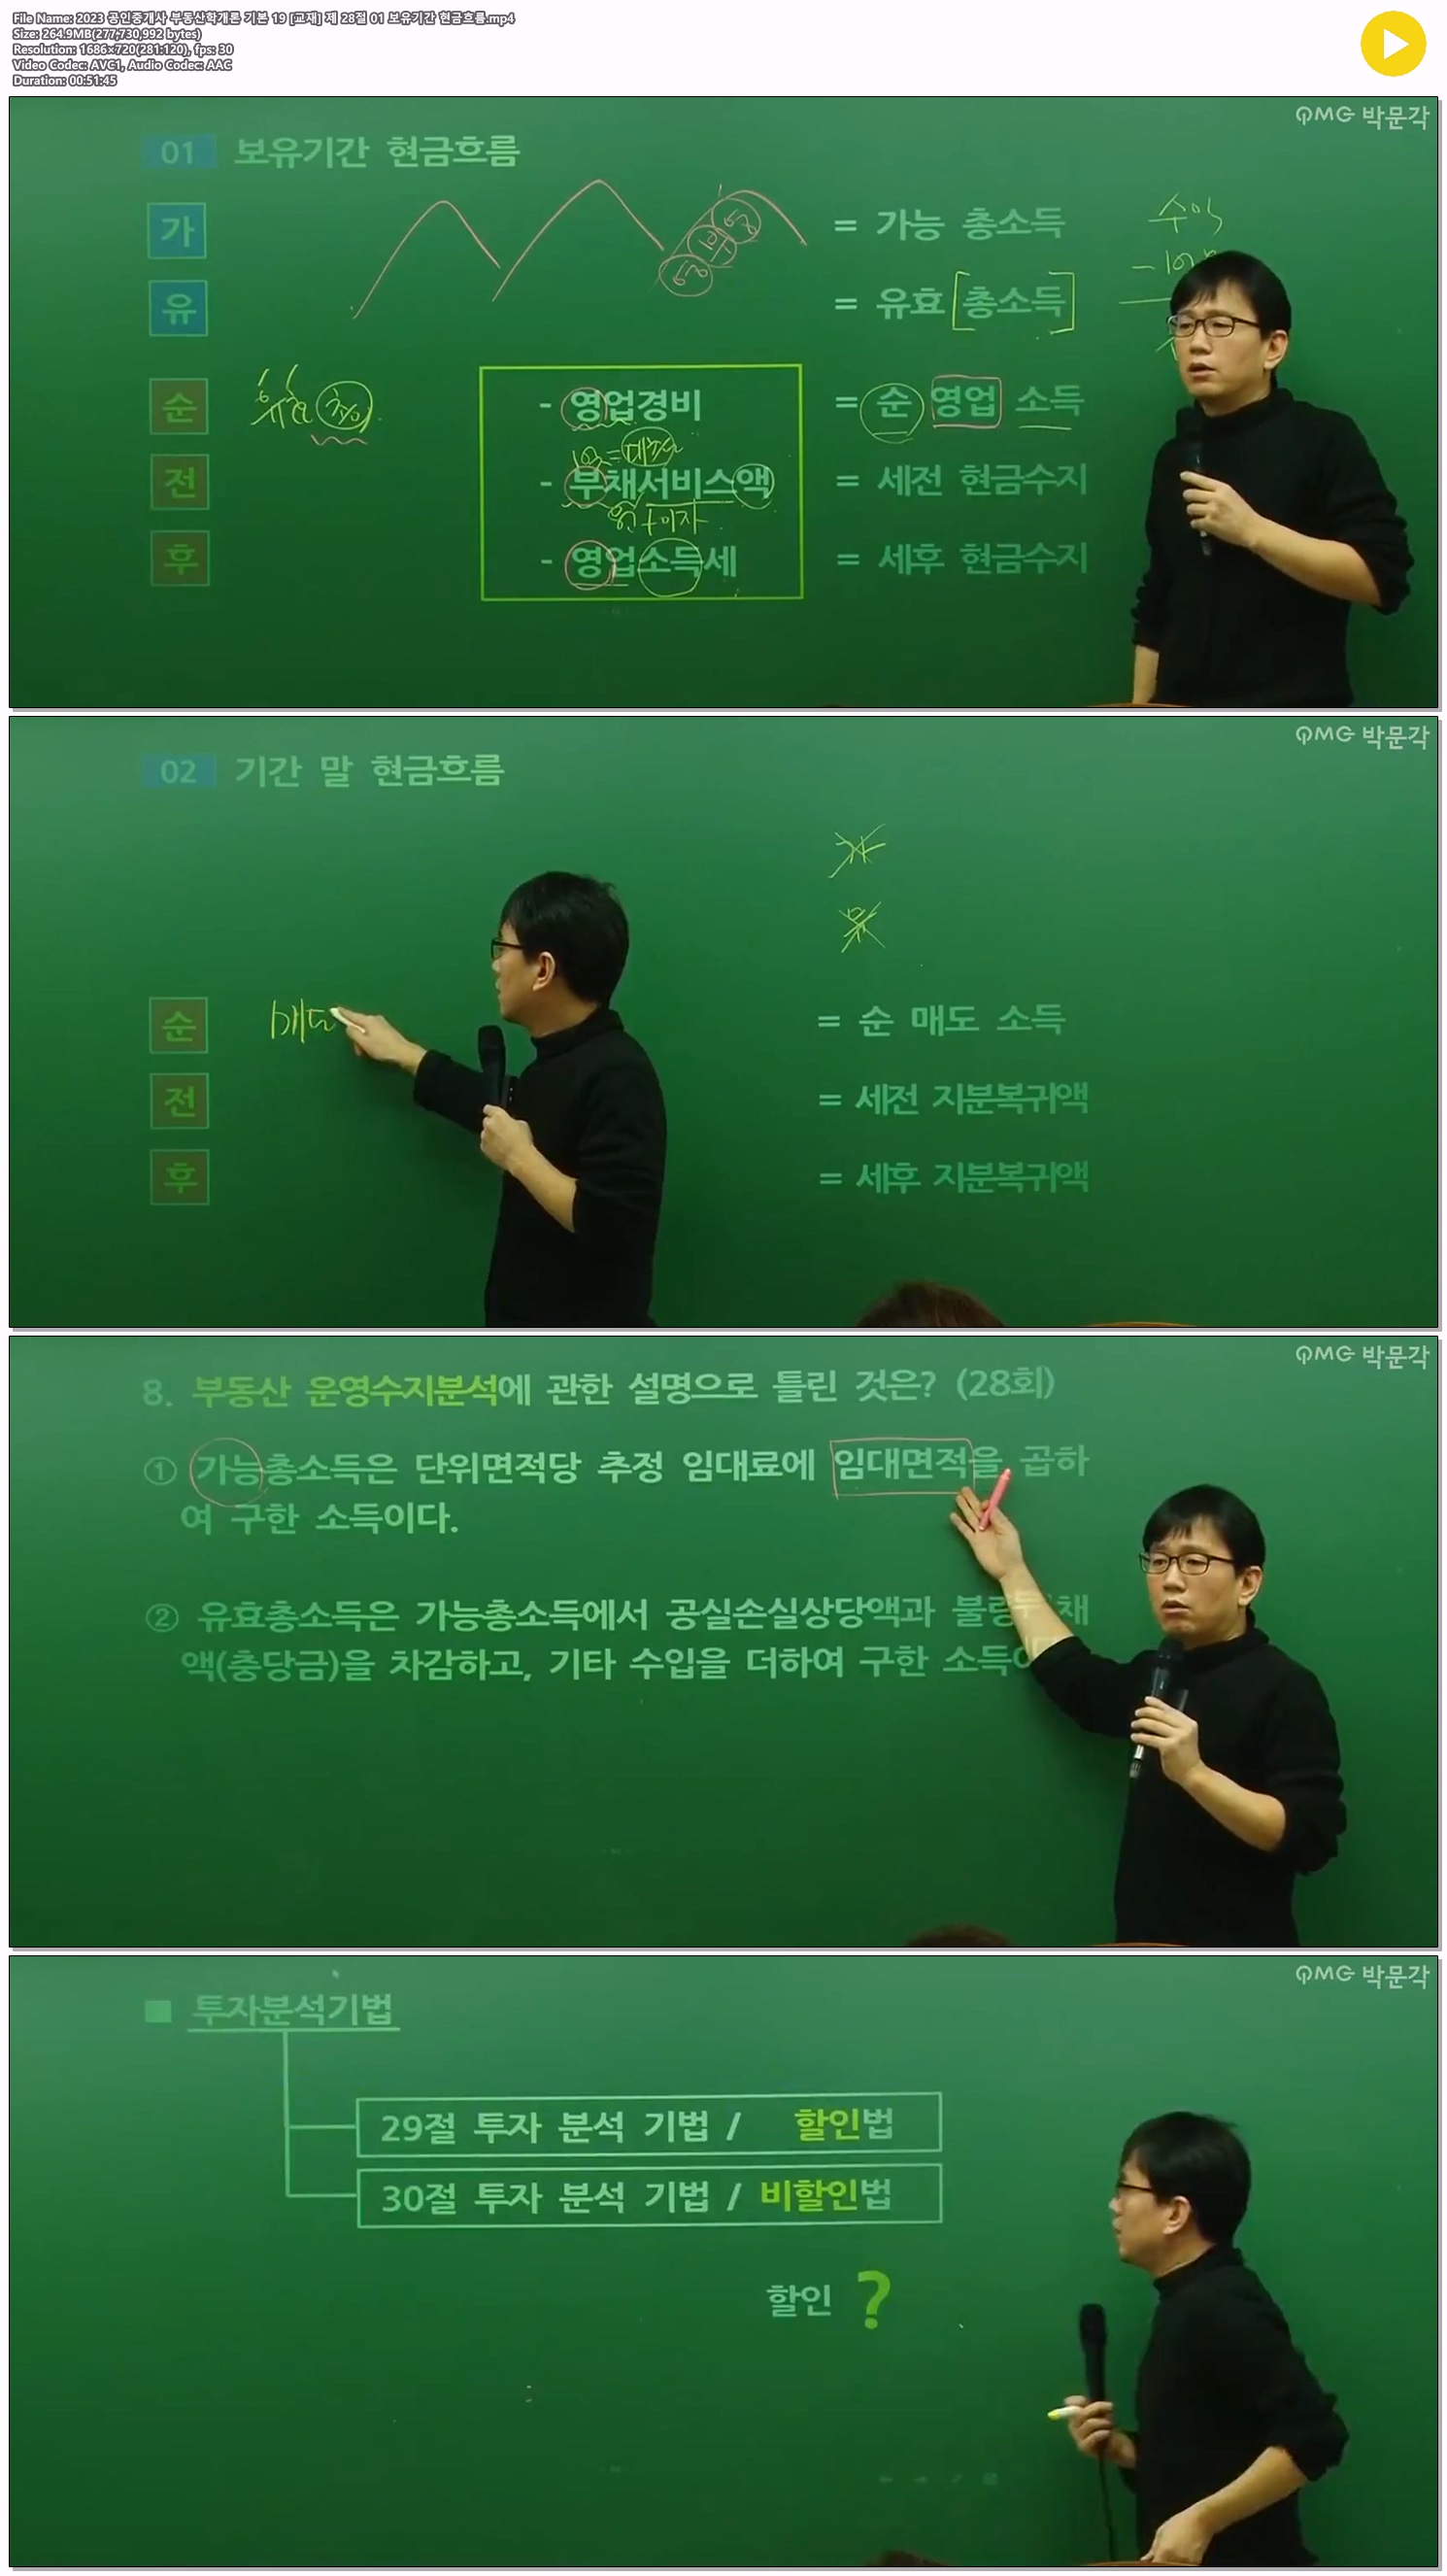 File Name: 2023 공인중개사 부동산학개론 기본 19 [교재] 제 28절 01 보유기간 현금흐름.mp4
Size: 264.9MB(277,730,992 bytes)
Resolution: 1686×720(281:120), fps: 30
Video Codec: AVC1, Audio Codec: AAC
Duration: 00:51:45
PMG 박문각
01 보유기간 현금흐름
가 = 가능 총소득
수익
유 = 유효 [총소득]
순 - 영업경비 = 순 영업 소득
전 - 부채서비스액 = 세전 현금수지
원+이자
후 - 영업소득세 = 세후 현금수지
PMG 박문각
02 기간 말 현금흐름
순 매도 = 순 매도 소득
전 = 세전 지분복귀액
후 = 세후 지분복귀액
PMG 박문각
8. 부동산 운영수지분석에 관한 설명으로 틀린 것은? (28회)
① 가능총소득은 단위면적당 추정 임대료에 임대면적을 곱하
여 구한 소득이다.
② 유효총소득은 가능총소득에서 공실손실상당액과 불량부채
액(충당금)을 차감하고, 기타 수입을 더하여 구한 소득
PMG 박문각
■ 투자분석기법
29절 투자 분석 기법 / 할인법
30절 투자 분석 기법 / 비할인법
할인 ?